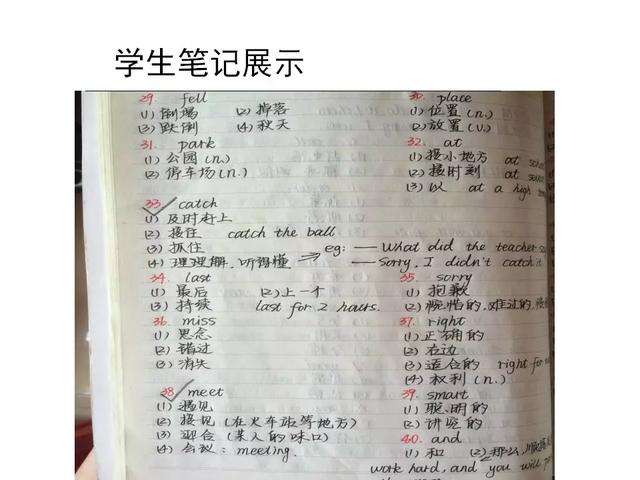 学生笔记展示
29. fell
(1) 倒塌 (2) 掉落
(3) 跌倒 (4) 秋天
30. place
(1) 位置 (n.)
(2) 放置 (v.)
31. park
(1) 公园 (n.)
(2) 停车场 (n.)
32. at
(1) 接小地方 at
(2) 接时刻 at
(3) 以 at a high
33. catch
(1) 及时赶上
(2) 接住 catch the ball
(3) 抓住
(4) 理理解, 听得懂 eg: — What did the teacher
— Sorry, I didn't catch it
34. last
(1) 最后 (2) 上一个
(3) 持续 last for 2 hours.
35. sorry
(1) 抱歉
(2) 惋惜的, 难过的,
36. miss
(1) 思念
(2) 错过
(3) 消失
37. right
(1) 正确的
(2) 右边
(3) 适合的 right for
(4) 权利 (n.)
38. meet
(1) 遇见
(2) 接见 (在火车站等地方)
(3) 迎合 (某人的味口)
(4) 会议: meeting.
39. smart
(1) 聪明的
(2) 讲究的
40. and
(1) 和 (2) 那么,
work hard, and you will